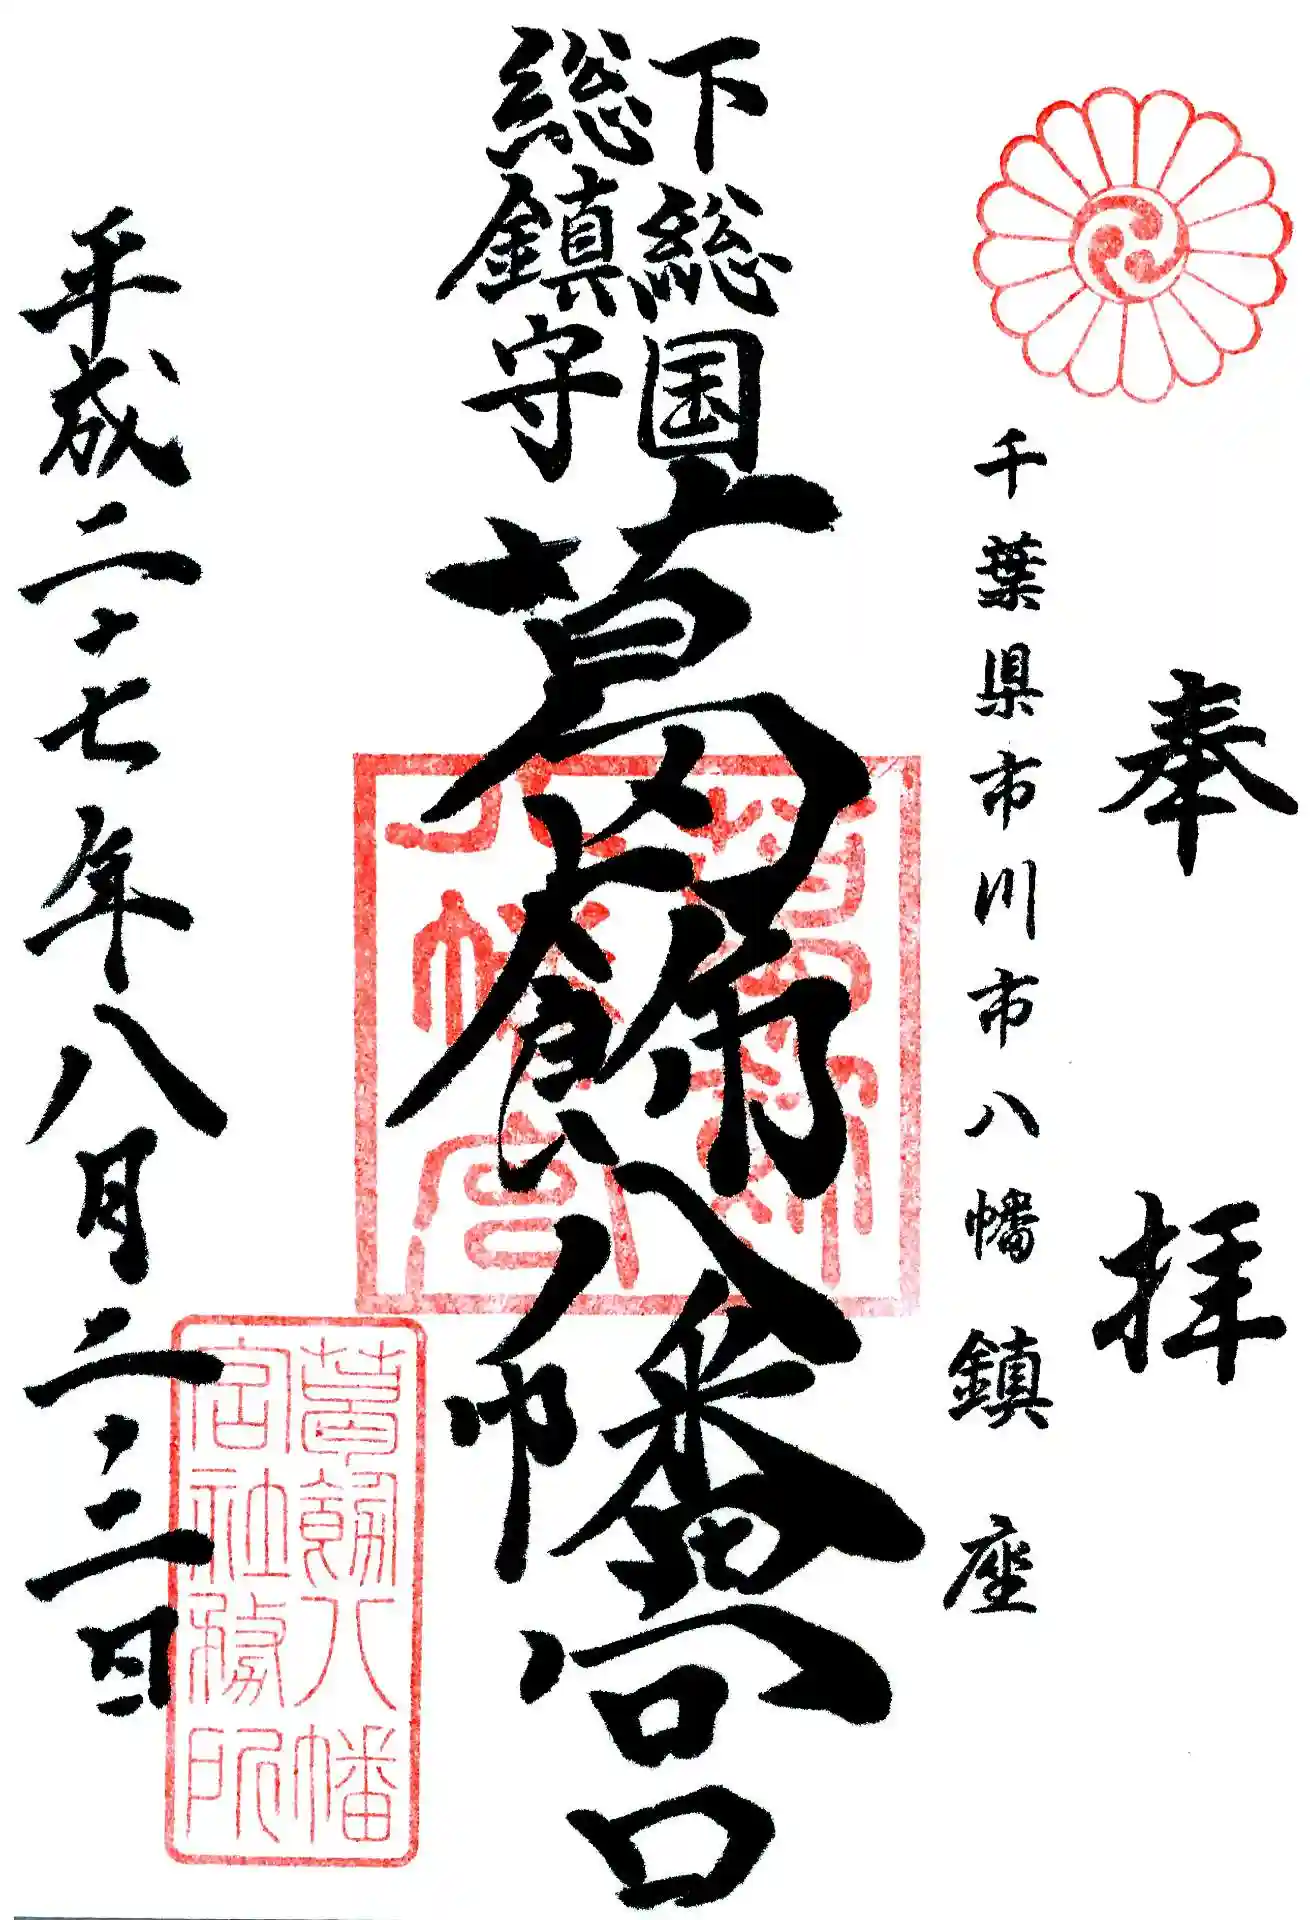 奉拝
千葉県市川市八幡鎮座
下総国
総鎮守
葛飾八幡宮
平成二十七年八月二十二日
葛飾
八幡宮
葛飾八幡
宮社務所